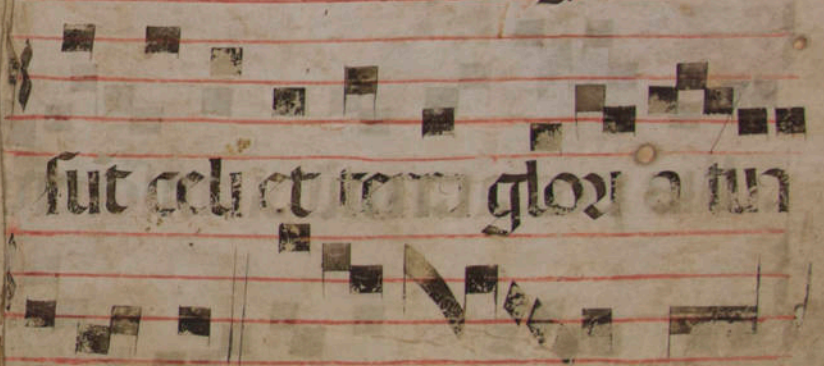 sut celi et terra gloria tua